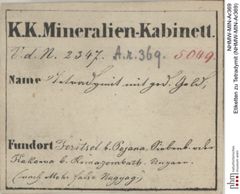 K.K. Mineralien-Kabinett.
V.d. N. 2347. A.n. 369. 5049.
Name Tetradymit mit ged. Gold,
Fundort bei Pojana, Siebenb. oder
b. Ungarn.
(nach Mohr false Nagyag)
NHMW-MIN-Ar369
Etiketten zu Tetradymit (NHMW-MIN-Ar369)